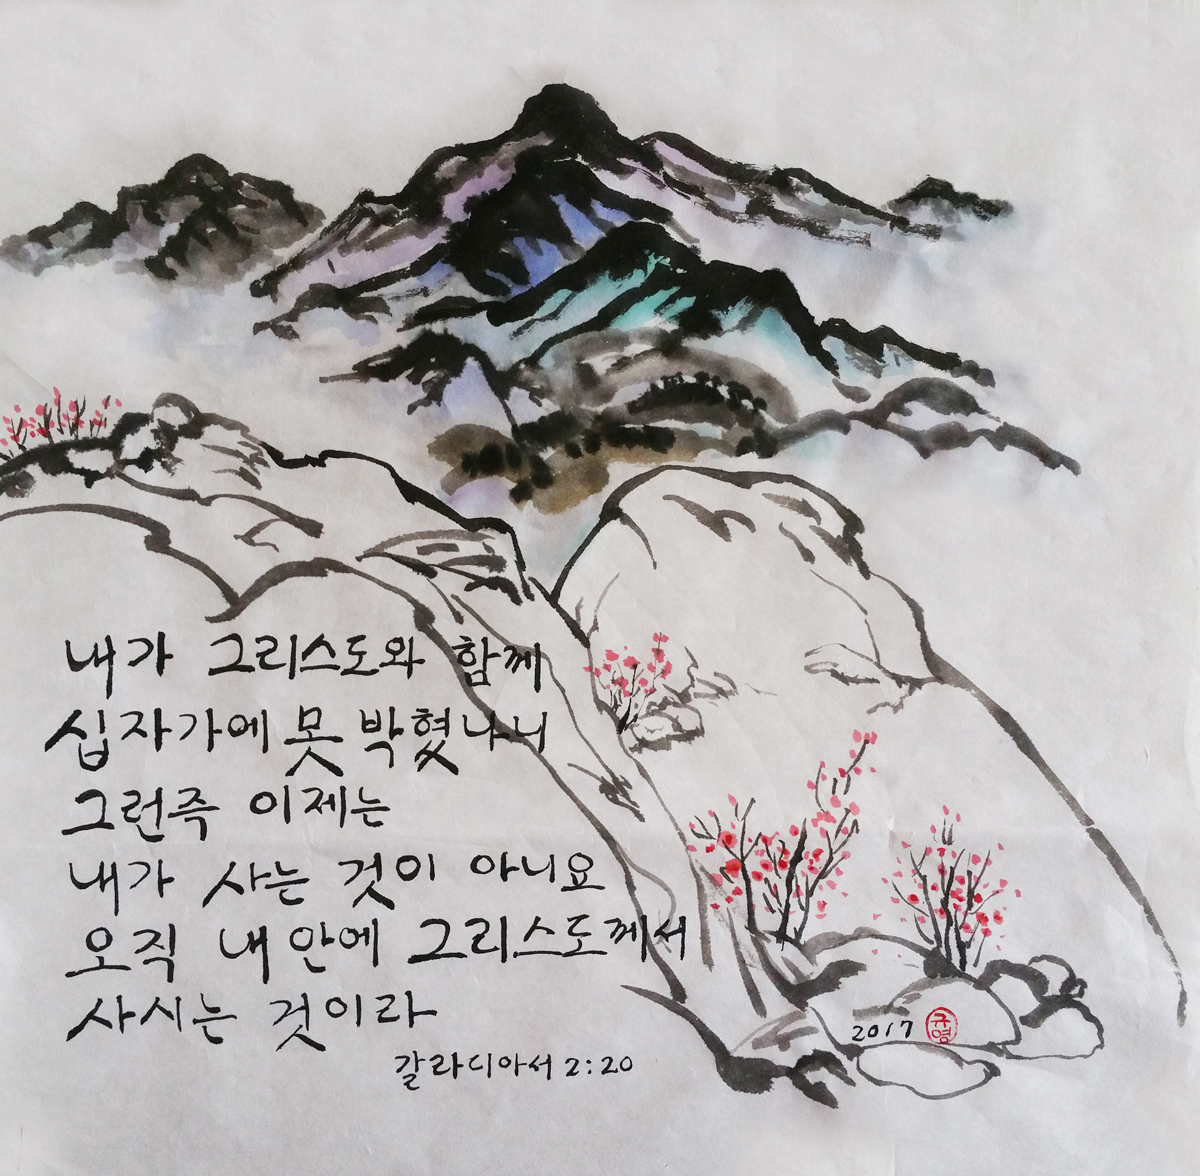 내가 그리스도와 함께
십자가에 못 박혔나니
그런즉 이제는
내가 사는 것이 아니요
오직 내 안에 그리스도께서
사시는 것이라
갈라디아서 2:20
2017 규영